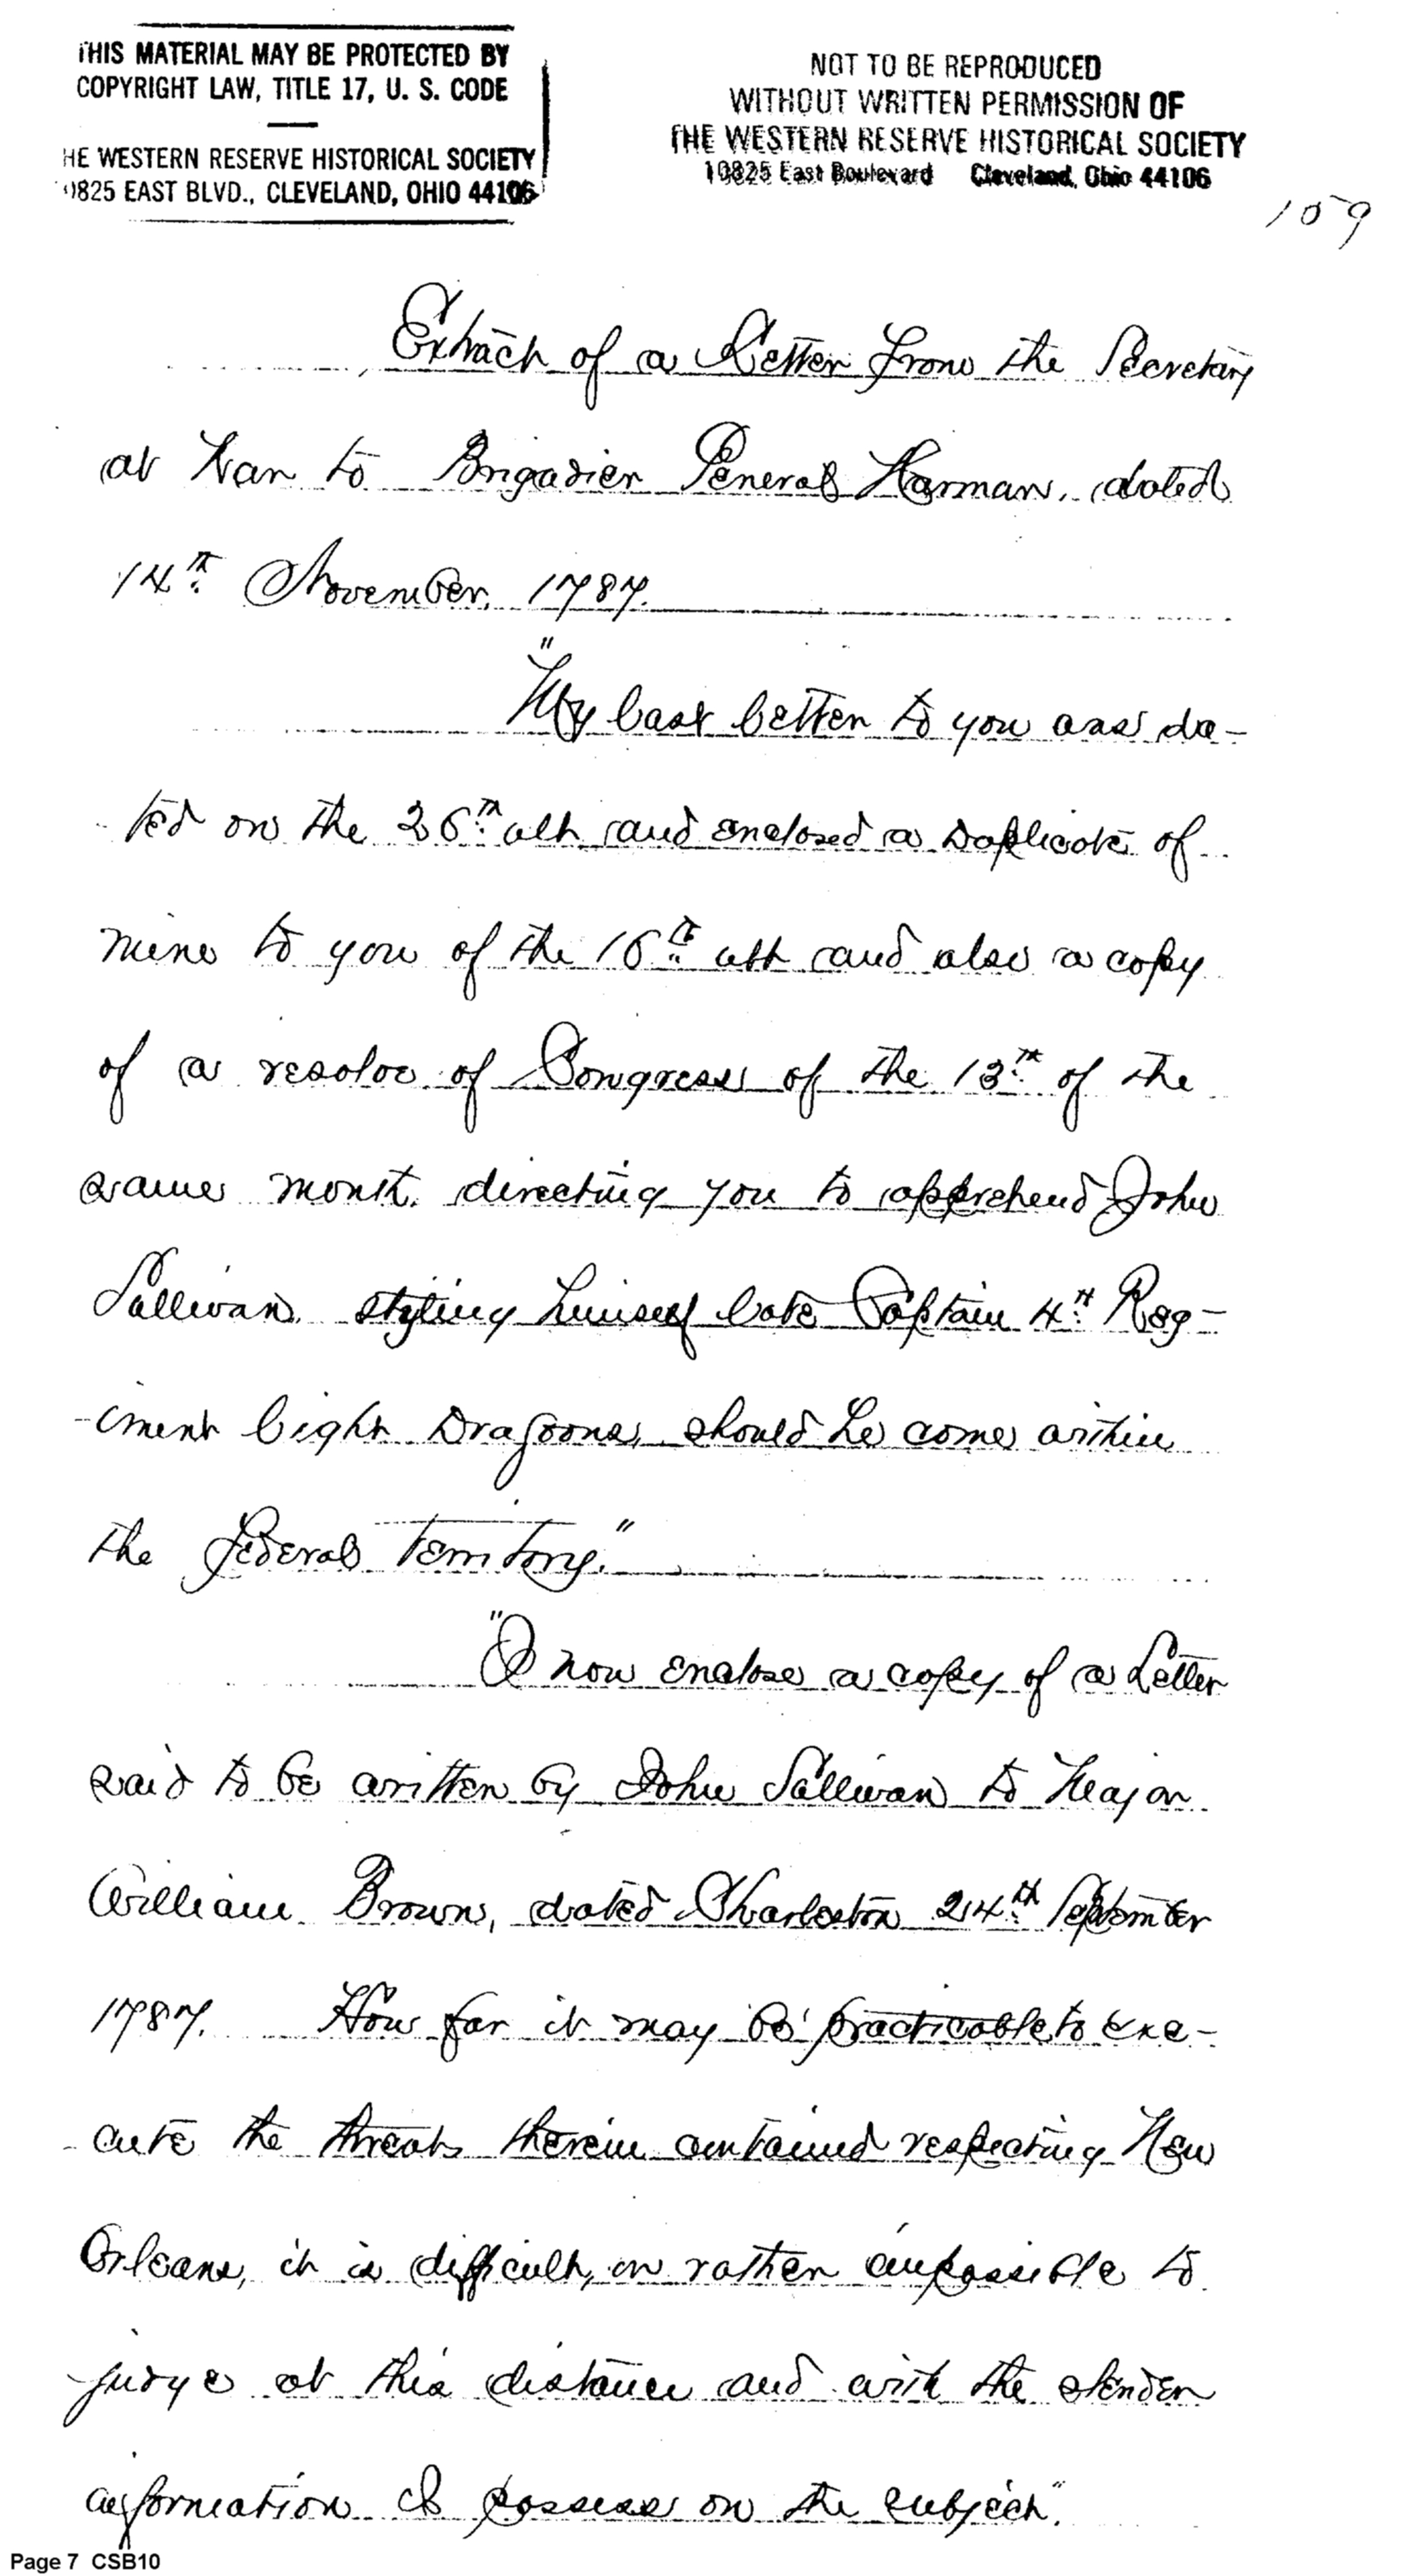 THIS MATERIAL MAY BE PROTECTED BY
COPYRIGHT LAW, TITLE 17, U. S. CODE
HE WESTERN RESERVE HISTORICAL SOCIETY
10825 EAST BLVD., CLEVELAND, OHIO 44106
NOT TO BE REPRODUCED
WITHOUT WRITTEN PERMISSION OF
THE WESTERN RESERVE HISTORICAL SOCIETY
10825 East Boulevard Cleveland, Ohio 44106
159
Extract of a Letter from the Secretary
at War to Brigadier General Harmar, dated
14th November, 1787.
"My last letter to you was da-
ted on the 26th ult and enclosed a Duplicate of
mine to you of the 16th ult and also a copy
of a resolve of Congress of the 13th of the
same month, directing you to apprehend John
Sullivan, styling himself late Captain 4th Reg-
-iment light Dragoons, should he come within
the federal territory."
"I now enclose a copy of a Letter
said to be written by John Sullivan to Major
William Brown, dated Charleston 24th September
1787. How far it may be practicable to exe-
-cute the threats therein contained respecting New
Orleans, it is difficult, or rather impossible to
judge at this distance and with the slender
information I possess on the subject."
Page 7 CSB10